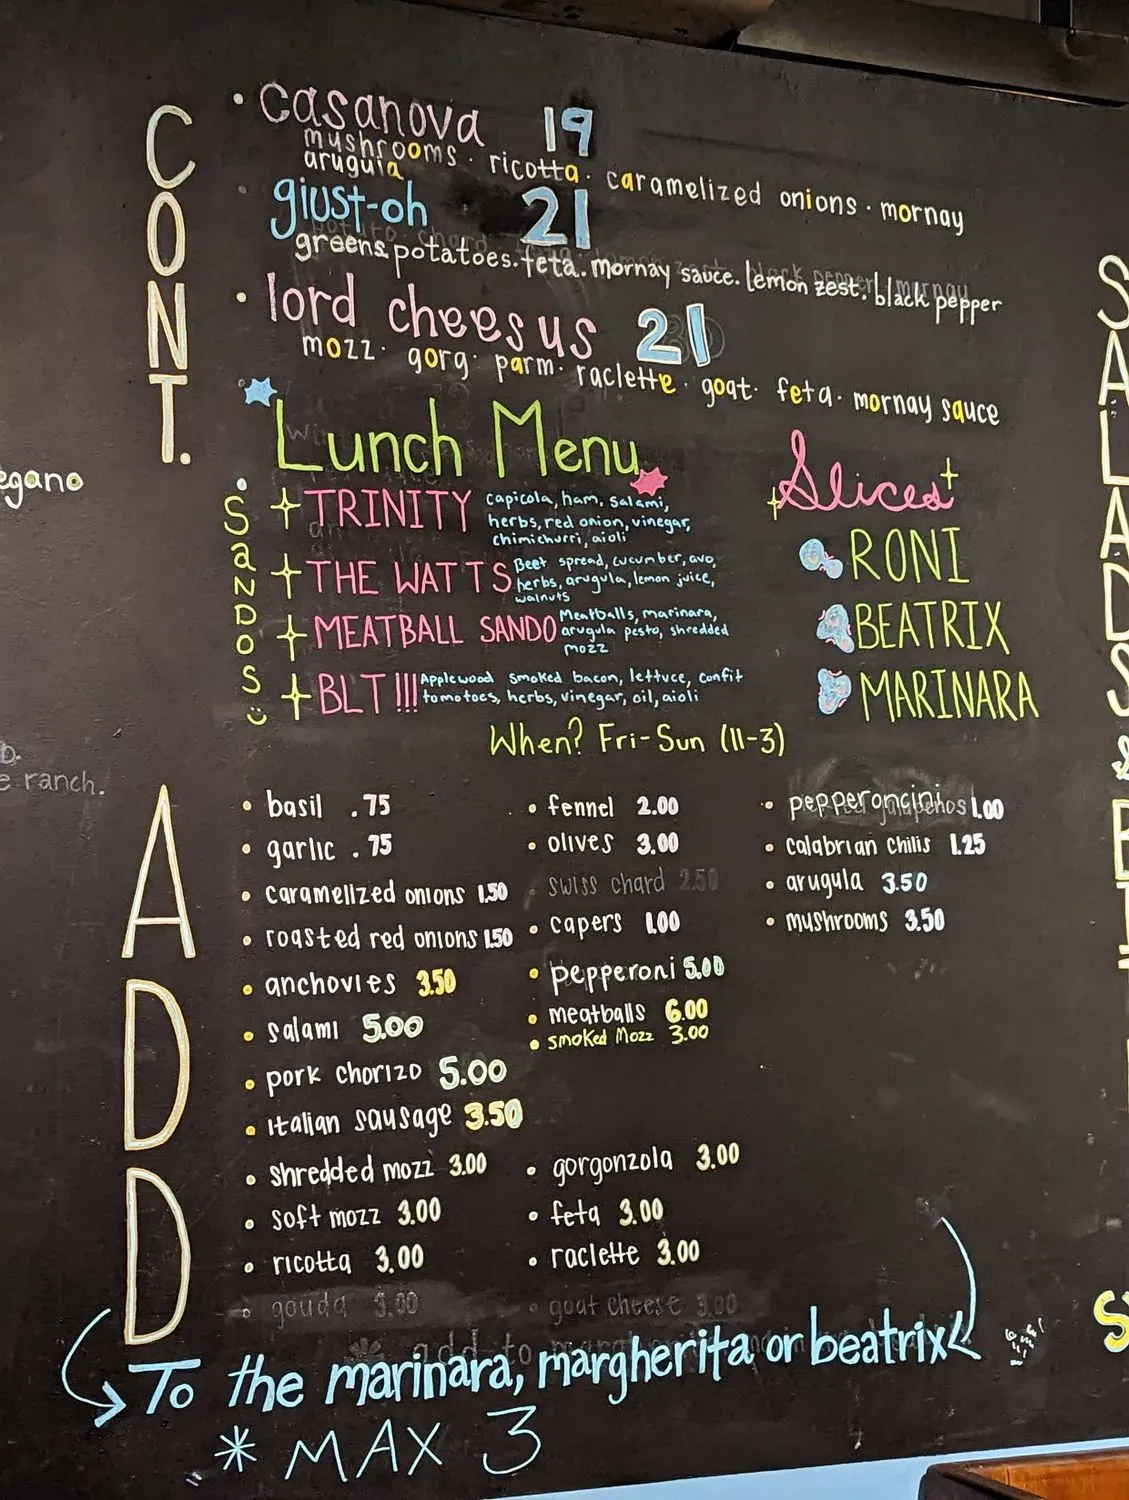 CONT.
• casanova 19
mushrooms · ricotta · caramelized onions · mornay
aruguia
giust-oh 21
greens potatoes · feta · mornay sauce · lemon zest · black pepper
• lord cheesus 21
mozz · gorg · parm · raclette · goat · feta · mornay sauce
Lunch Menu
SaNDOS
TRINITY capicola, ham, salami,
herbs, red onion, vinegar,
chimichurri, aioli
THE WATTS Beet spread, cucumber, avo,
herbs, arugula, lemon juice,
walnuts
MEATBALL SANDO Meatballs, marinara,
arugula pesto, shredded
mozz
BLT!!! Applewood smoked bacon, lettuce, confit
tomatoes, herbs, vinegar, oil, aioli
Slices
RONI
BEATRIX
MARINARA
When? Fri-Sun (11-3)
ADD
• basil .75
• garlic .75
• caramelized onions 1.50
• roasted red onions 1.50
• anchovies 3.50
• salami 5.00
• pork chorizo 5.00
• italian sausage 3.50
• shredded mozz 3.00
• soft mozz 3.00
• ricotta 3.00
• gouda 3.00
• fennel 2.00
• olives 3.00
• swiss chard 2.50
• capers 1.00
• pepperoni 5.00
• meatballs 6.00
• smoked mozz 3.00
• gorgonzola 3.00
• feta 3.00
• raclette 3.00
• goat cheese 3.00
• pepperoncini 1.00
• calabrian chilis 1.25
• arugula 3.50
• mushrooms 3.50
To the marinara, margherita or beatrix
* MAX 3
egano
ranch.
SALADS &